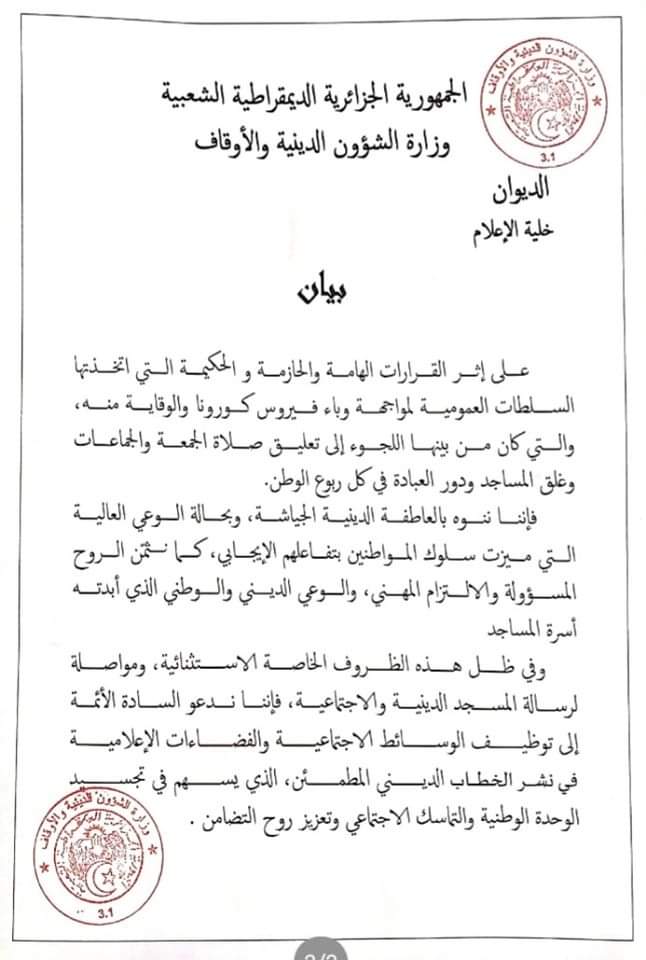 وزارة الشؤون الدينية والأوقاف
3.1
الجمهورية الجزائرية الديمقراطية الشعبية
وزارة الشؤون الدينية والأوقاف
الديوان
خلية الإعلام
بيان
على إثر القرارات الهامة والحازمة و الحكيمة التي اتخذتها
السلطات العمومية لمواجهة وباء فيروس كورونا والوقاية منه،
والتي كان من بينها اللجوء إلى تعليق صلاة الجمعة والجماعات
وغلق المساجد ودور العبادة في كل ربوع الوطن.
فإننا ننوه بالعاطفة الدينية الجياشة، وبحالة الوعي العالية
التي ميزت سلوك المواطنين بتفاعلهم الإيجابي، كما نثمّن الروح
المسؤولة والالتزام المهني، والوعي الديني والوطني الذي أبدته
أسرة المساجد
وفي ظل هذه الظروف الخاصة الاستثنائية، ومواصلة
لرسالة المسجد الدينية والاجتماعية، فإننا ندعو السادة الأئمة
إلى توظيف الوسائط الاجتماعية والفضاءات الإعلامية
في نشر الخطاب الديني المطمئن، الذي يسهم في تجسيد
الوحدة الوطنية والتماسك الاجتماعي وتعزيز روح التضامن .
وزارة الشؤون الدينية والأوقاف
3.1